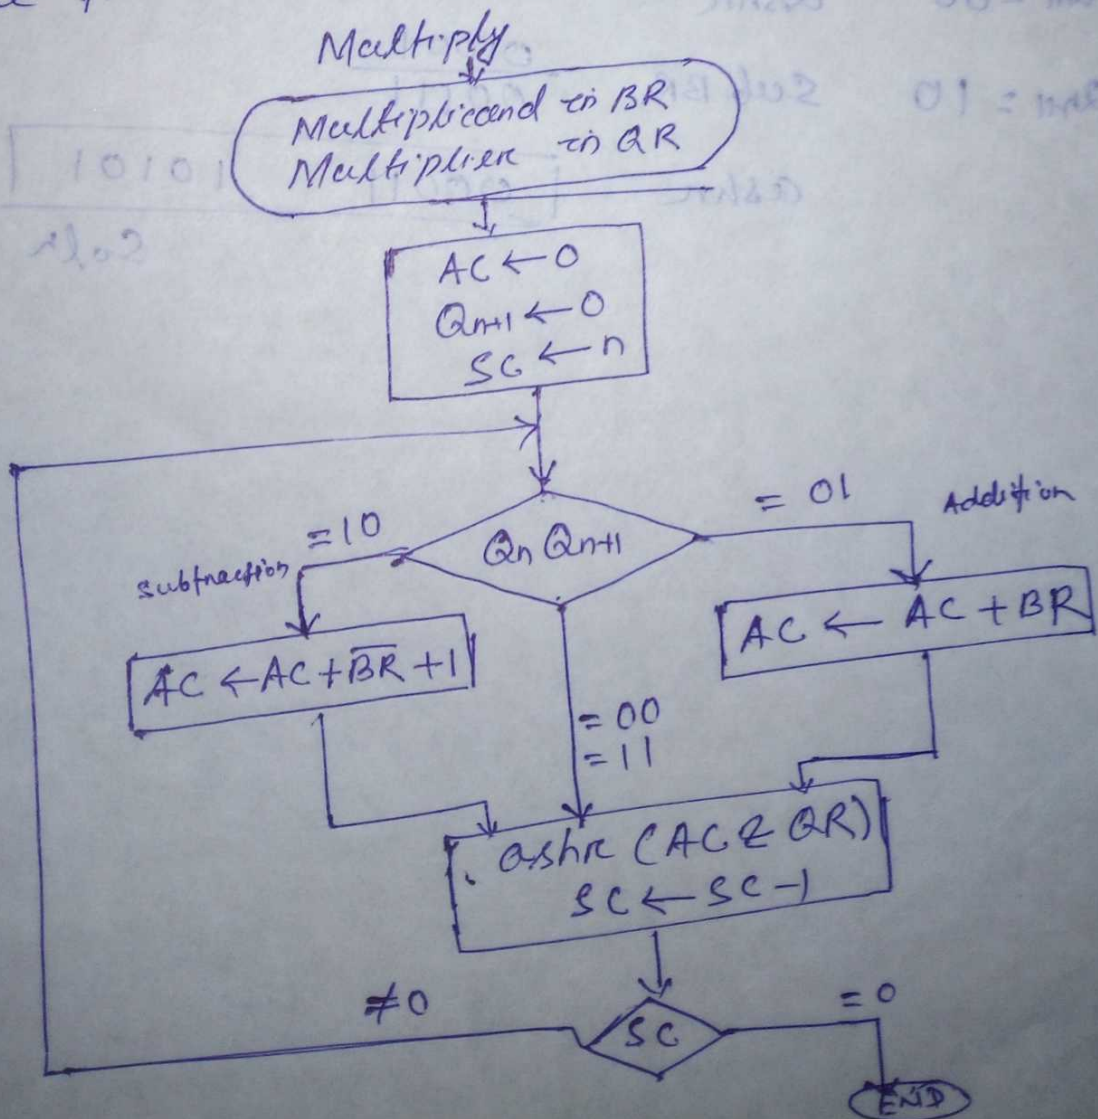 Multiply
Multiplicand in BR
Multiplier in QR
AC ← 0
Qn+1 ← 0
SC ← n
Qn Qn+1
= 10
Subtraction
= 01
Addition
AC ← AC + B̅R̅ + 1
AC ← AC + BR
= 00
= 11
ashr (AC & QR)
SC ← SC - 1
SC
≠ 0
= 0
END